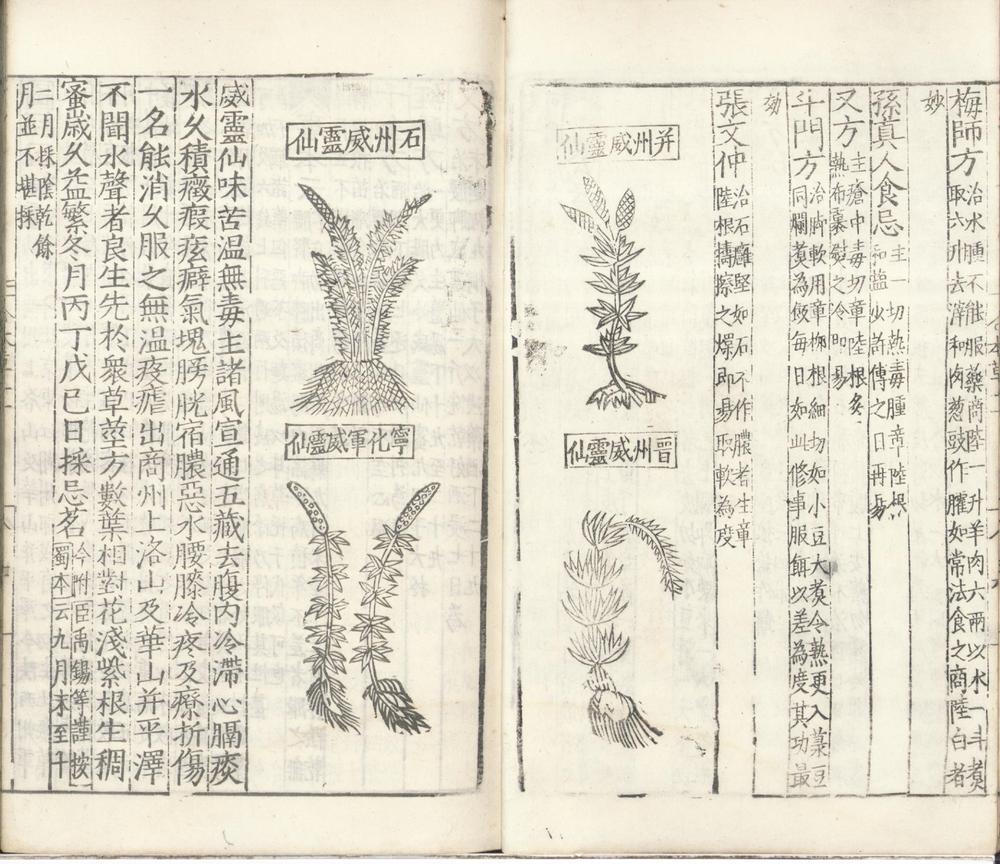 梅師方治水腫不能服藥商陸一升羊肉六兩以水一斗煮
取六升去滓和肉葱豉作臛如常法食之商陸白者
妙
孫真人食忌主一切熱毒腫章陸根
和鹽少許傅之日再易
又方主瘡中毒切章陸根炙
熱布裹熨之冷即易
斗門方治脚軟用章柳根細切如小豆大煮令熟更入菉豆
同爛煮為飯每日如此修事服餌以差為度其功最
効
張文仲治石癰堅如石不作膿者生章
陸根擣擦之燥即易取軟為度
并州威靈仙
晉州威靈仙
石州威靈仙
寧化軍威靈仙
威靈仙味苦温無毒主諸風宣通五藏去腹内冷滯心膈痰
水久積癥瘕痃癖氣塊膀胱宿膿惡水腰膝冷疼及療折傷
一名能消久服之無温疫瘧出商州上洛山及華山并平澤
不聞水聲者良生先於衆草莖方數葉相對花淺紫根生稠
蜜歲久益繁冬月丙丁戊己日採忌茗今附臣禹錫等謹按
蜀本云九月末至十
二月採陰乾餘
月並不堪採